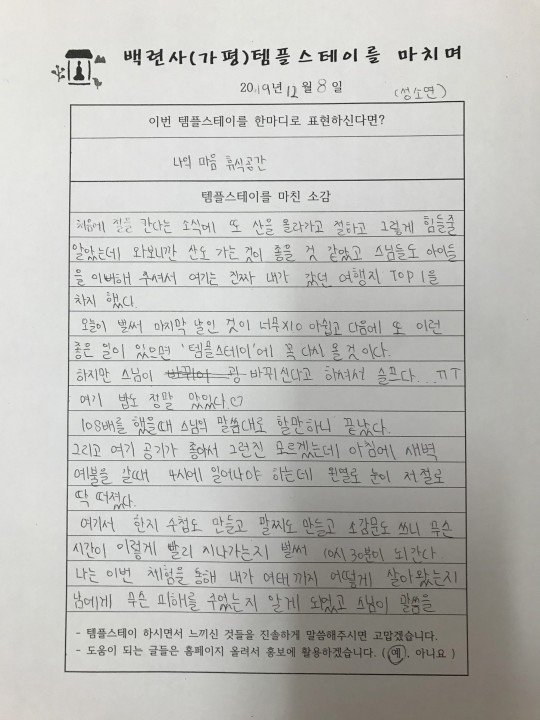 백련사(가평)템플스테이를 마치며
2019년 12월 8일
(성소연)
이번 템플스테이를 한마디로 표현하신다면?
나의 마음 휴식공간
템플스테이를 마친 소감
처음에 절을 간다는 소식에 또 산을 올라가고 절하고 그렇게 힘들줄
알았는데 와보니깐 산도 가는 것이 좋을 것 같았고 스님들도 아이들
을 이뻐해 주셔서 여기는 진짜 내가 갔던 여행지 TOP 1을
차지 했다.
오늘이 벌써 마지막 날인 것이 너무X10 아쉽고 다음에 또 이런
좋은 일이 있으면 '템플스테이'에 꼭 다시 올 것이다.
하지만 스님이 바뀌신다고 하셔서 슬프다...ㅠㅜ
여기 밥도 정말 맛있다.♡
108배를 했을때 스님의 말씀대로 할만하니 끝났다.
그리고 여기 공기가 좋아서 그런진 모르겠는데 아침에 새벽
예불을 갈때 4시에 일어나야 하는데 웬열로 눈이 저절로
딱 떠졌다.
여기서 한지 수첩도 만들고 팔찌도 만들고 소감문도 쓰니 무슨
시간이 이렇게 빨리 지나가는지 벌써 10시 30분이 되간다.
나는 이번 체험을 통해 내가 여태까지 어떻게 살아왔는지
남에게 무슨 피해를 주었는지 알게 되었고 스님이 말씀을
- 템플스테이 하시면서 느끼신 것들을 진솔하게 말씀해주시면 고맙겠습니다.
- 도움이 되는 글들은 홈페이지 올려서 홍보에 활용하겠습니다. ( 예, 아니요 )